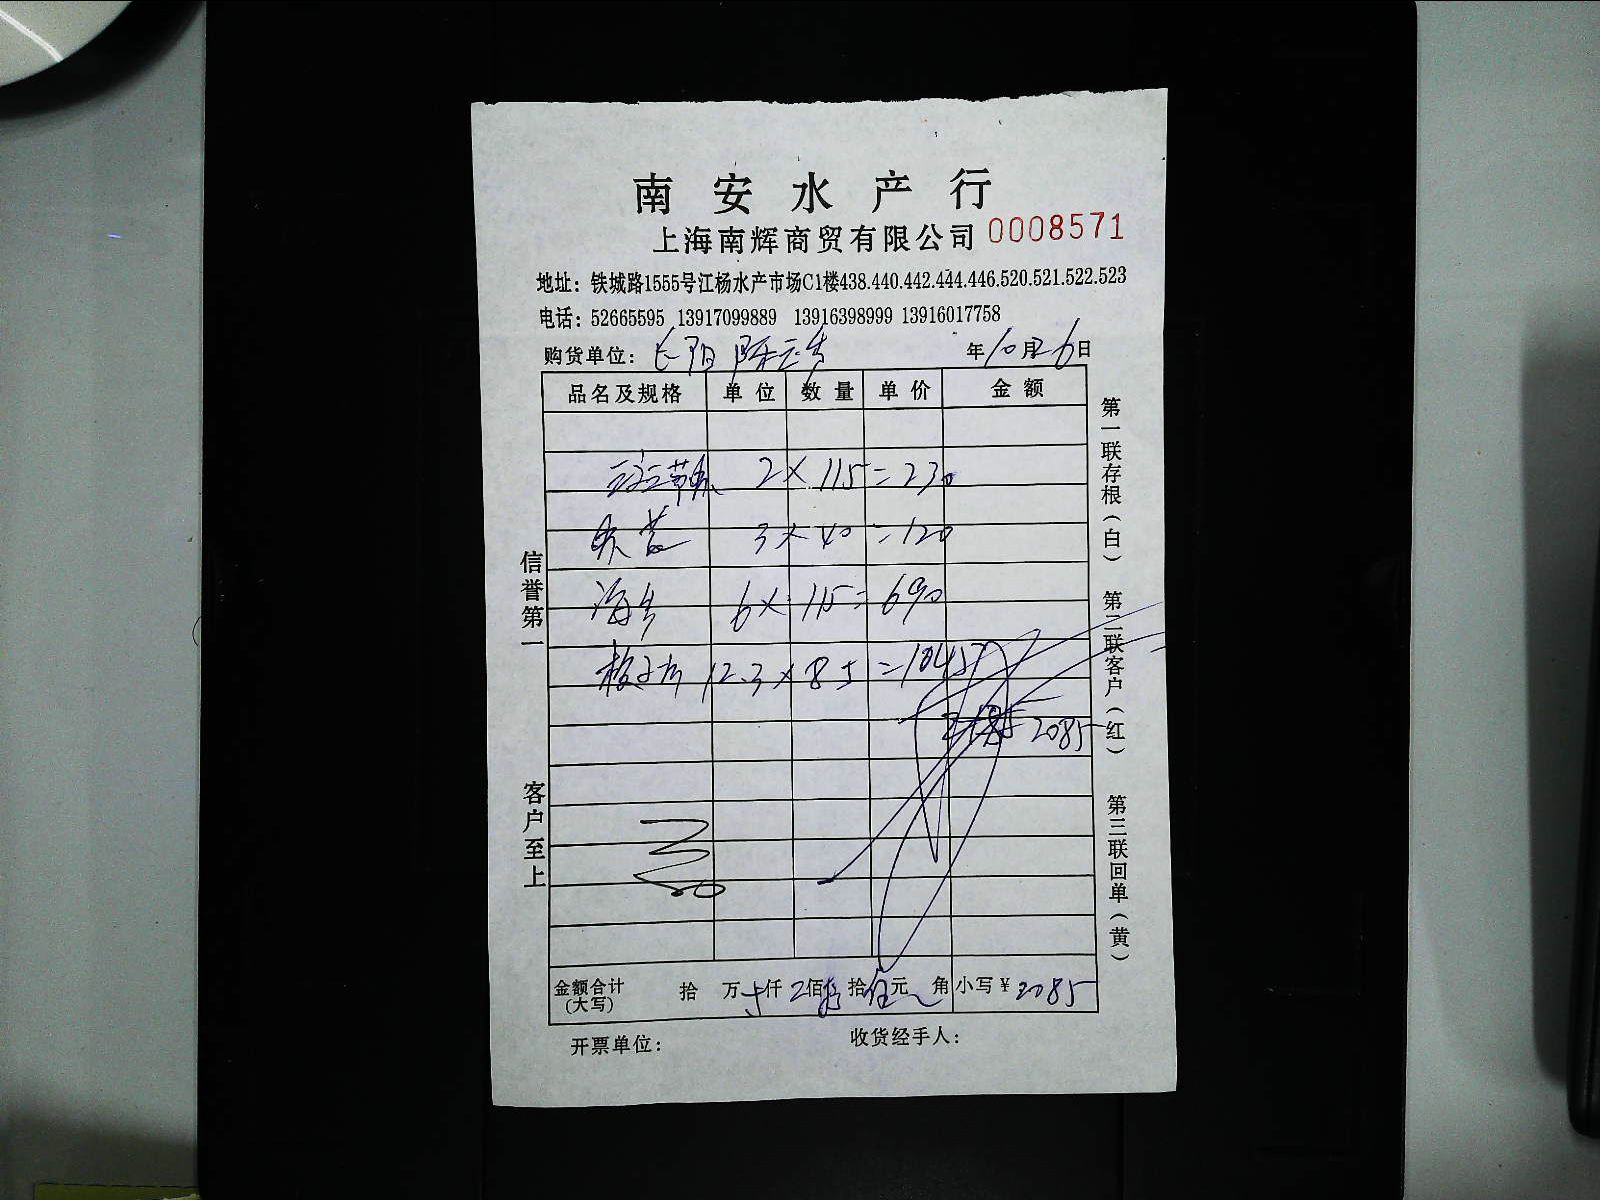 南安水产行
上海南辉商贸有限公司 0008571
地址：铁城路1555号江杨水产市场C1楼438.440.442.444.446.520.521.522.523
电话：52665595 13917099889 13916398999 13916017758
购货单位：长阳 年10月6日
品名及规格 单位 数量 单价 金额
2×115=230
3×40=120
6×115=690
12.3×85=1045
2085
金额合计（大写） 拾 万 仟 佰 拾 伍元 角 小写￥2085
开票单位： 收货经手人：
信誉第一
客户至上
第一联存根（白）
第二联客户（红）
第三联回单（黄）